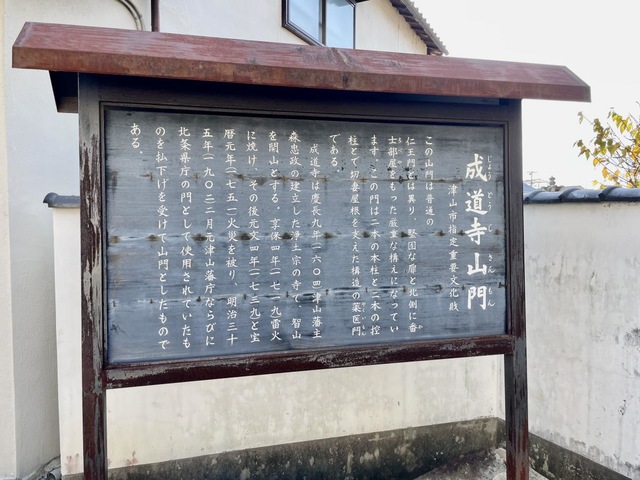 じょうどうじさんもん
成道寺山門
津山市指定重要文化財
この山門は普通の
仁王門とは異り、堅固な扉と北側に番
士部屋をもった厳重な構えになってい
ます。この門は二本の本柱と二本の控
柱とで切妻屋根を支えた構造の薬医門
である。
成道寺は慶長九年(一六〇四)津山藩主
森忠政の建立した浄土宗の寺で、智山
を開山とする。享保四年(一七一九)雷火
に焼け、その後元文四年(一七三九)と宝
暦元年(一七五一)火災を被り、明治三十
五年(一九〇二)二月元津山藩庁ならびに
北条県庁の門として使用されていたも
のを払下げを受けて山門としたもので
ある。